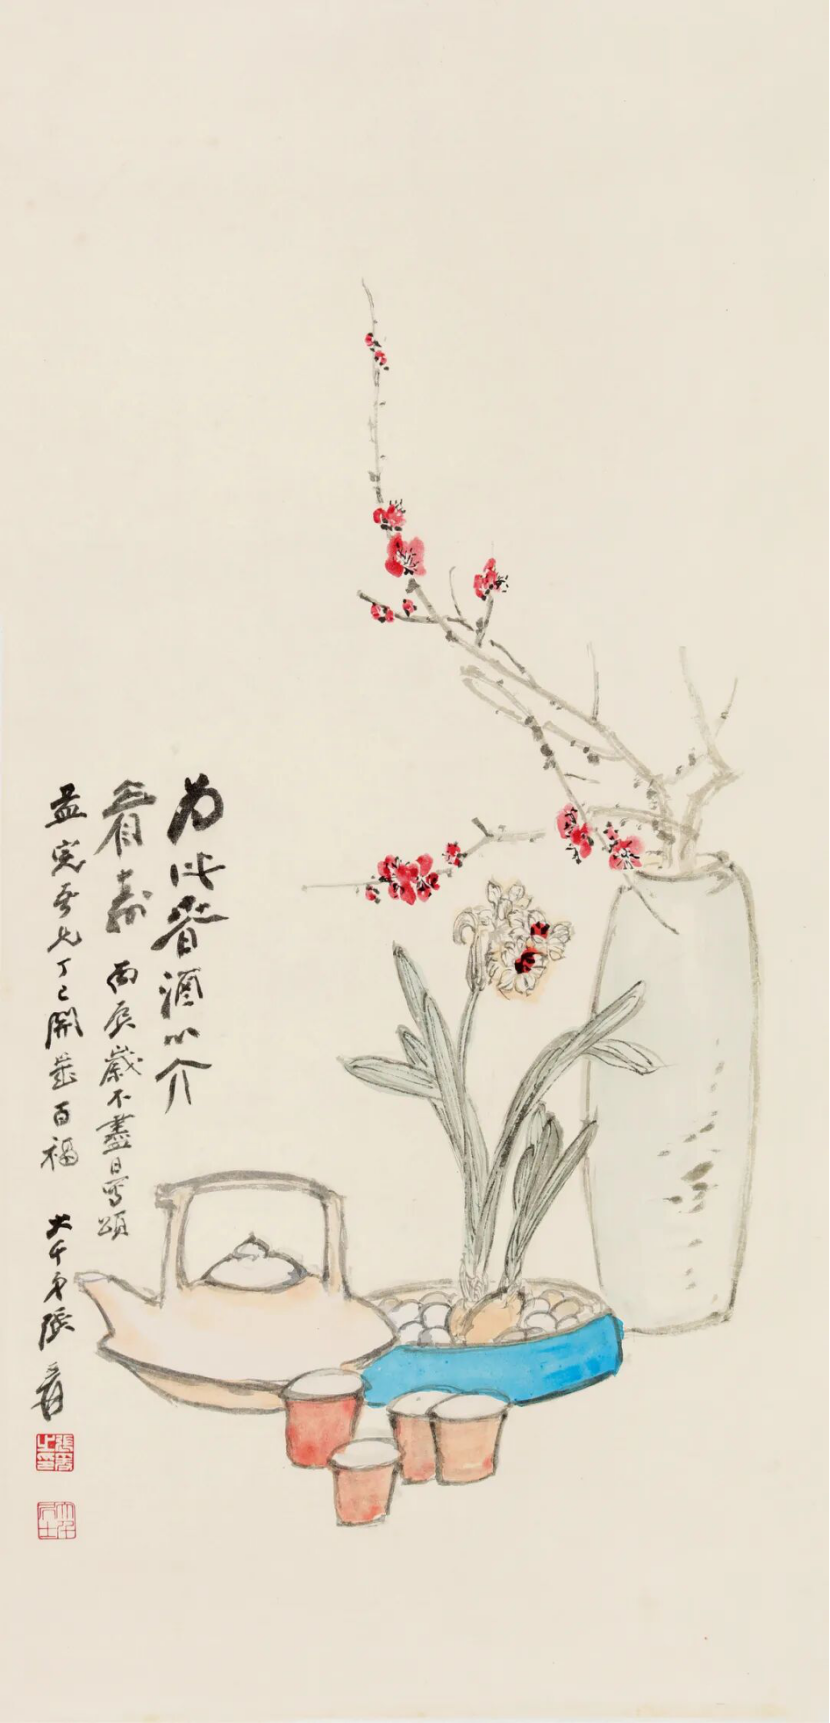 為此春酒以介
眉壽 丙辰歲不盡日寫頌
益憲吾兄丁巳開歲百福 大千弟張爰
張爰之印
大千居士